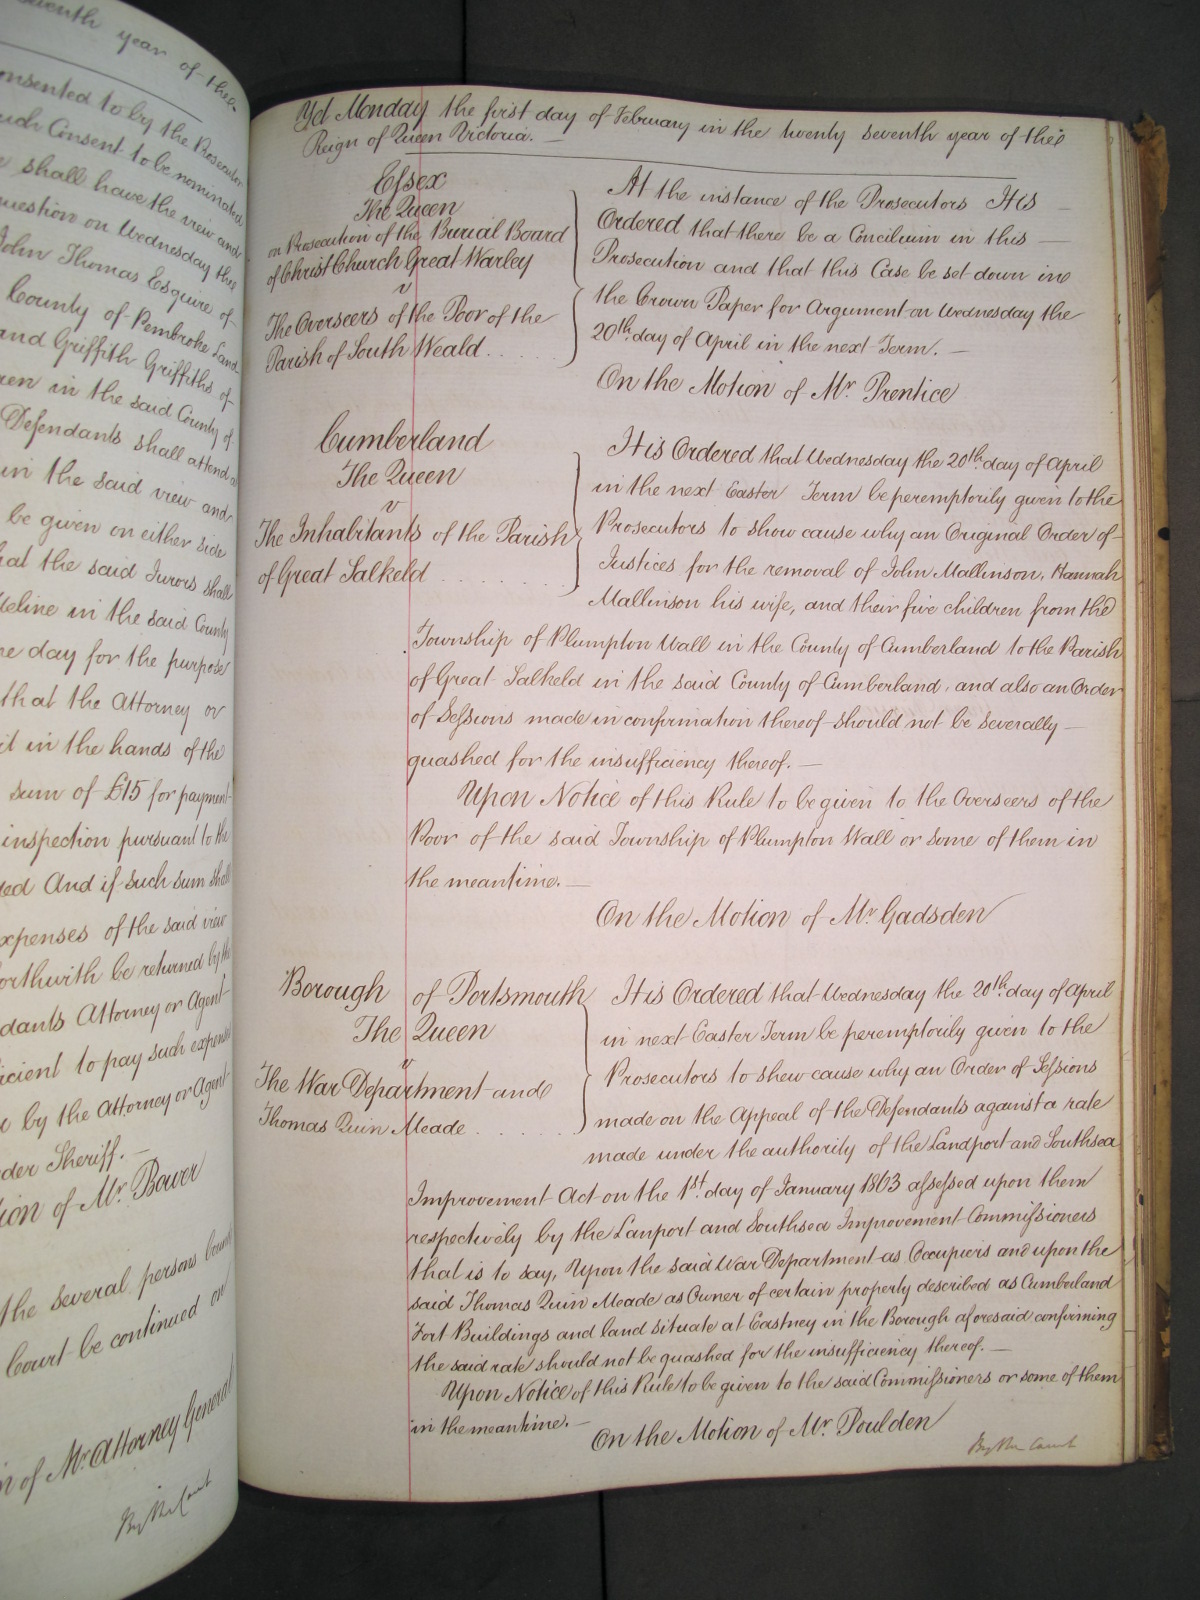 seventh year of the
onsented to by the Prosecutor
such Consent to be nominated
shall have the view and
question on Wednesday the
John Thomas Esquire of
County of Pembroke Land
and Griffith Griffiths of
ren in the said County of
Defendants shall attend
in the said view and
be given on either side
hat the said Jurors shall
teline in the said County
me day for the purpose
that the Attorney or
it in the hands of the
sum of £15 for payment
inspection pursuant to the
ded And if such sum shall
expenses of the said view
forthwith be returned by the
dants Attorney or Agent
icient to pay such expenses
by the Attorney or Agent
der Sheriff. —
tion of Mr. Bower
the several persons bound
Court be continued on
n of Mr. Attorney General
By the Court
Yet Monday the first day of February in the twenty seventh year of the
Reign of Queen Victoria. —
Essex
The Queen
on Prosecution of the Burial Board
of Christ Church Great Warley
v
The Overseers of the Poor of the
Parish of South Weald . . . .
At the instance of the Prosecutors It is —
Ordered that there be a Concilium in this —
Prosecution and that this Case be set down in
the Crown Paper for Argument on Wednesday the
20th. day of April in the next Term. —
On the Motion of Mr. Prentice
Cumberland
The Queen
v
The Inhabitants of the Parish
of Great Salkeld . . . . . . .
It is Ordered that Wednesday the 20th. day of April
in the next Easter Term be peremptorily given to the
Prosecutors to show cause why an Original Order of
Justices for the removal of John Mallinson, Hannah
Mallinson his wife, and their five children from the
Township of Plumpton Wall in the County of Cumberland to the Parish
of Great Salkeld in the said County of Cumberland, and also an Order
of Sessions made in confirmation thereof should not be severally —
quashed for the insufficiency thereof. —
Upon Notice of this Rule to be given to the Overseers of the
Poor of the said Township of Plumpton Wall or some of them in
the meantime. —
On the Motion of Mr. Gadsden
Borough of Portsmouth
The Queen
v
The War Department and
Thomas Quin Meade . . . . . .
It is Ordered that Wednesday the 20th. day of April
in next Easter Term be peremptorily given to the
Prosecutors to shew cause why an Order of Sessions
made on the Appeal of the Defendants against a rate
made under the authority of the Landport and Southsea
Improvement Act on the 1st. day of January 1863 assessed upon them
respectively by the Lanport and Southsea Improvement Commissioners
that is to say, Upon the said War Department as Occupiers and upon the
said Thomas Quin Meade as Owner of certain property described as Cumberland
Fort Buildings and land situate at Eastney in the Borough aforesaid confirming
the said rate should not be quashed for the insufficiency thereof. —
Upon Notice of this Rule to be given to the said Commissioners or some of them
in the meantime. —
On the Motion of Mr. Poulden
By the Court